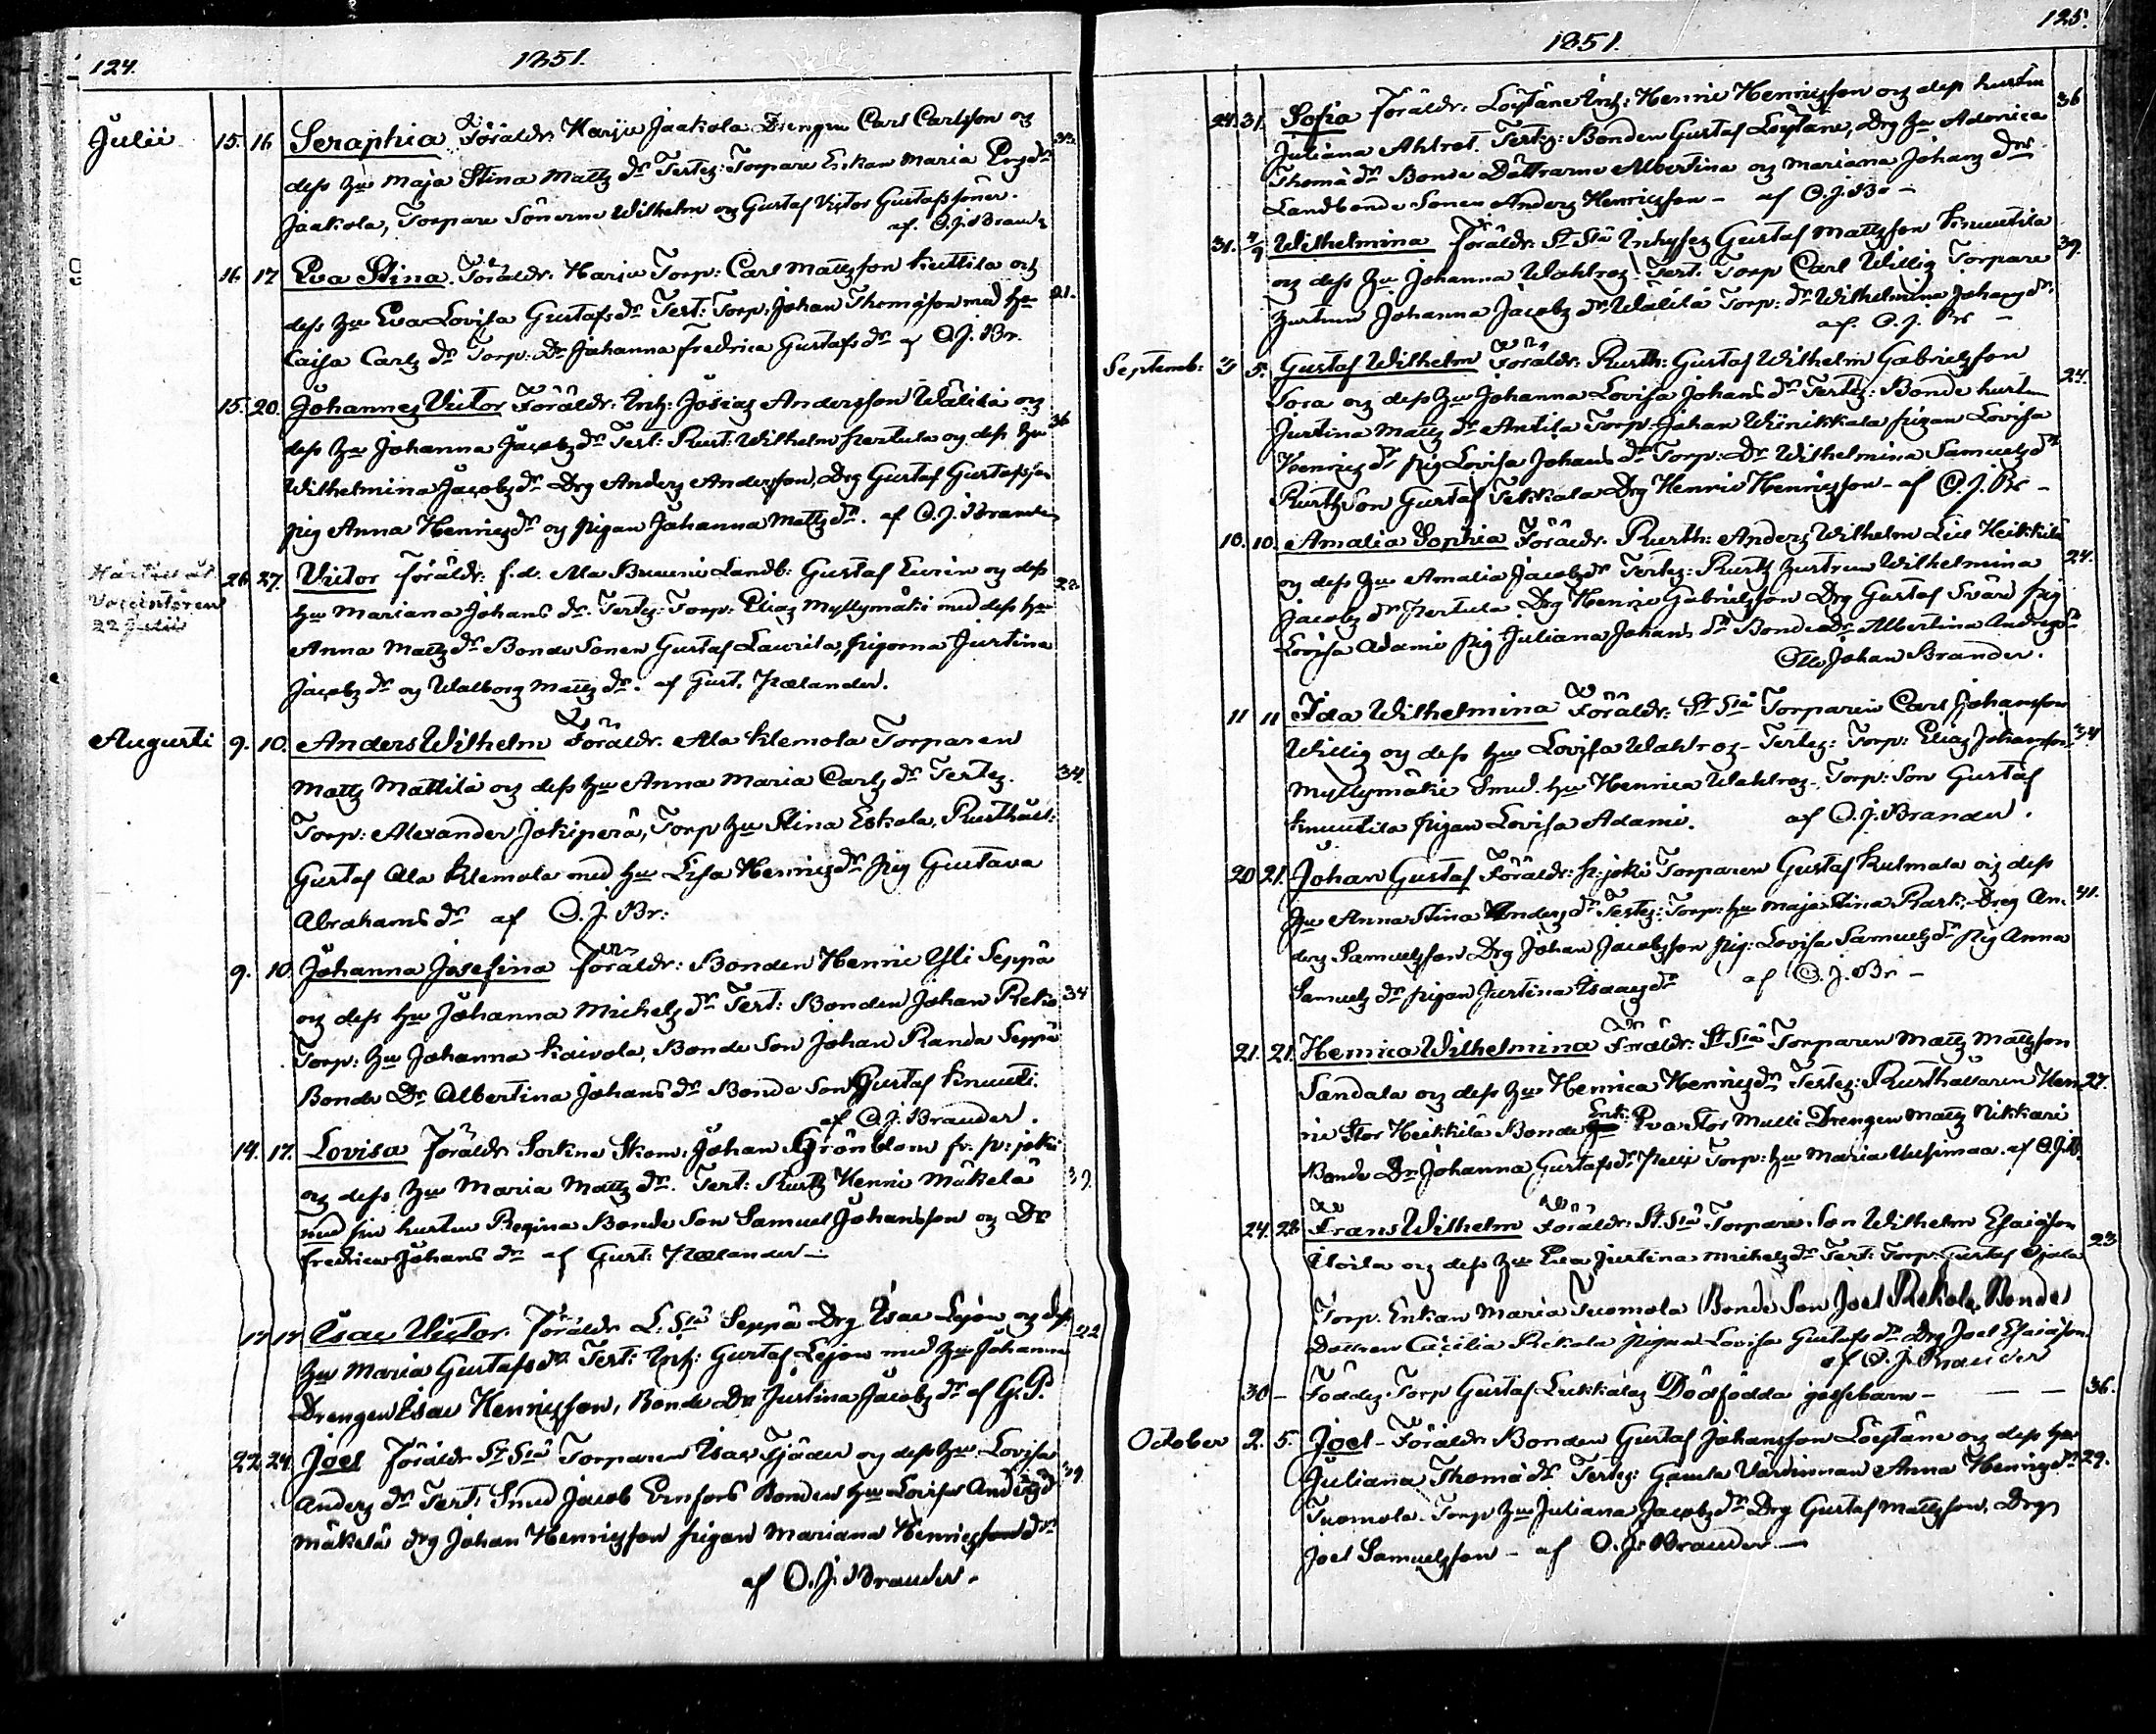 124.
1851.
Julii 15. 16 Seraphia Föräldr. Harju Jaakola Drengen Carl Carlsson og 33.
dess hu Maja Stina Matts dr Testes: Torpare Enkan Maria
Jaakola, Torpare Sönerne Wilhelm og Gustaf Victor Gustafssöner.
af. O.J. Brander
16. 17 Eva Stina. Föräldr. Harju Torp: Carl Mattsson Kuttila og
dess hu Eva Lovisa Gustafs dr Test: Torp: Johan Thomasson med hu 21.
Caisa Carls dr Torp: Dr Johanna Fredrica Gustafs dr af O.J. Br.
15. 20. Johannes Victor Föräldr: Inh: Josias Andersson Wälilä og
dess hu Johanna Jacobs dr Test: Rust: Wilhelm Pertula og dess hu 36
Wilhelmina Jacobs dr Drg Anders Andersson, Drg Gustaf Gustafsson
pig Anna Henrics dr og pigan Johanna Matts dr. af O.J. Brander
26. 27. Victor Föräldr: f.d. Ala Landb: Gustaf og dess 22.
Vaccinatören
22 Julii
hu Mariana Johans dr. Testes: Torp: Elias Myllymäki med dess hu
Anna Matts dr Bonde Sonen Gustaf Laurila, pigorna Justina
Jacobs dr og Walborg Matts dr. af Gust. Palander.
Augusti 9. 10. Anders Wilhelm Föräldr. Ala Klemola Torparen
Matts Mattila og dess hu Anna Maria Carls dr Testes. 34.
Torp: Alexander Jokiperä, Torp hu Stina Eskola, Rusthåll:
Gustaf Ala Klemola med hu Lisa Henrics dr pig Gustava
Abrahams dr af O.J. Br:
9. 10. Johanna Josefina Föräldr: Bonden Henric Yli Seppä
og dess hu Johanna Michels dr Test: Bonden Johan Rekio 34
Torp: hu Johanna Kaivola, Bonde Son Johan Randa Seppä
Bonde Dr Albertina Johans dr Bonde Son Gustaf Knuuti.
af O.J. Brander.
14. 17. Lovisa Föräldr Sockne Skom: Johan Grönblom fr. P: joki
og dess hu Maria Matts dr. Test: Rusth Henric Mäkelä 39.
med sin hustru Regina Bonde Son Samuel Johansson og Dr
Fredrica Johans dr af Gust: Palander —
17 17 Isac Victor. Föräldr L. Sta Seppä Drg Isac Lejon og dess 22
hu Maria Gustafs dr. Test: Inh: Gustaf Lejon med hu Johanna
Drengen Esac Henricsson, Bonde Dr Justina Jacobs dr af G.P.
22 24. Joel Föräldr St Sta Torparen Isac Fjäder og dess hu Lovisa
Anders dr Test: Smed Jacob Ernfors Bonden hu Lovisa Anders dr 39.
Mäkelä drg Johan Henricsson pigan Mariana Henricsson dr
af O.J. Brander.
125.
1851.
24. 31. Sofia Föräldr: Löytäne Inh: Henric Henricsson og dess hustru 36
Juliana Ahlrot. Testes: Bonden Gustaf Löytäne, Drg hu Adorica
Thoma dr Bonde Döttrarne Albertina og Mariana Johans drs
Landbonde Sonen Anders Henricsson — af O.J. Br —
31. 4/9 Wilhelmina Föräldr: St Sta Inhyses Gustaf Mattsson Knuutila
og dess hu Johanna Wahlros. Test: Torp Carl Willig Torpare 39.
hustrun Johanna Jacobs dr Wälilä Torp: dr Wilhelmina Johans dr.
af. O.J. Br —
Septemb: 3 5. Gustaf Wilhelm Föräldr: Rusth: Gustaf Wilhelm Gabrielsson
Sora og dess hu Johanna Lovisa Johans dr Testes: Bonde hustru 24.
Justina Matts dr Antila Torp: Johan Wiinikkala pigan Lovisa
Henrics dr pig Lovisa Johans dr Torp: Dr Wilhelmina Samuels dr
Rusth Son Gustaf Teikkala Drg Henric Henricsson — af O.J. Br —
10. 10. Amalia Sophia Föräldr. Rusth: Anders Wilhelm Lill Heikkilä
og dess hu Amalia Jacobs dr Testes: Rusth hustrun Wilhelmina 24.
Jacobs dr Pertula Drg Henric Gabrielsson Drg Gustaf Svärd pig
Lovisa Adami pig Juliana Johans dr Bonde Dr Albertina Anders dr
Otto Johan Brander.
11 11 Ida Wilhelmina Föräldr: St Sta Torparen Carl Johansson
Willig og dess hu Lovisa Wahlros — Testes: Torp: Elias Johansson 34
Myllymäki Smed. hu Henrica Wahlros — Torp: Son Gustaf
Knuutila pigan Lovisa Adami. af O.J. Brander.
20 21. Johan Gustaf Föräldr: P: joki Torparen Gustaf Kulmala og dess
hu Anna Stina Anders dr Testes: Torp: hu Maja Stina Rask, Dreg An- 41.
ders Samuelsson Drg Johan Jacobsson pig: Lovisa Samuels dr pig Anna
Samuels dr pigan Justina Isaacs dr af O.J. Br —
21. 21. Henrica Wilhelmina Föräldr: St Sta Torparen Matts Mattsson
Sandala og dess hu Henrica Henrics dr Testes: Rusthållaren Hen- 27.
ric Stor Heikkilä Bonde Enk: Eva Stor Mulli Drengen Matts Nikkari
Bonde Dr Johanna Gustafs dr Torp: hu Maria Uusimaa. af O.J.B.
24. 28 Frans Wilhelm Föräldr: St. Sta Torpare Son Wilhelm Esaiasson
og dess hu Eva Justina Michels dr Test: Torp: Gustaf Ojala 23
Torp. Enkan Maria Tuomola Bonde Son Joel Rekola, Bonde
Dottren Cecilia Rekola pigan Lovisa Gustafs dr Drg Joel Esaiasson
af O.J. Brander
30 — Föddes Torp Gustaf Lukkalas Dödfödda gossebarn — — — 36.
October 2. 5. Joel — Föräldr Bonden Gustaf Johansson Löytäne og dess hu
Juliana Thoma dr Testes: Gamla Värdinnan Anna Henrics dr 29.
Tuomola. Torp hu Juliana Jacobs dr Drg Gustaf Mattsson, Drg
Joel Samuelsson — af O.J. Brander —